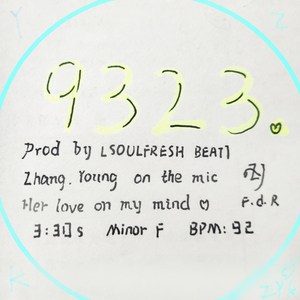 Y
Z
9323.
Prod by [SOULFRESH BEAT]
Zhang.Young on the mic
Her love on my mind ♡ F.d.R
3:30s Minor F BPM: 92
K